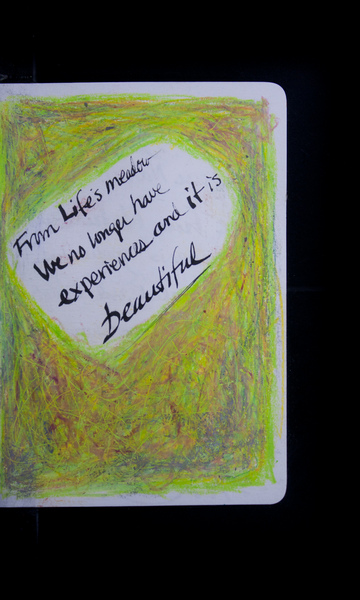 From Life's meadow
We no longer have
experiences and it is
beautiful